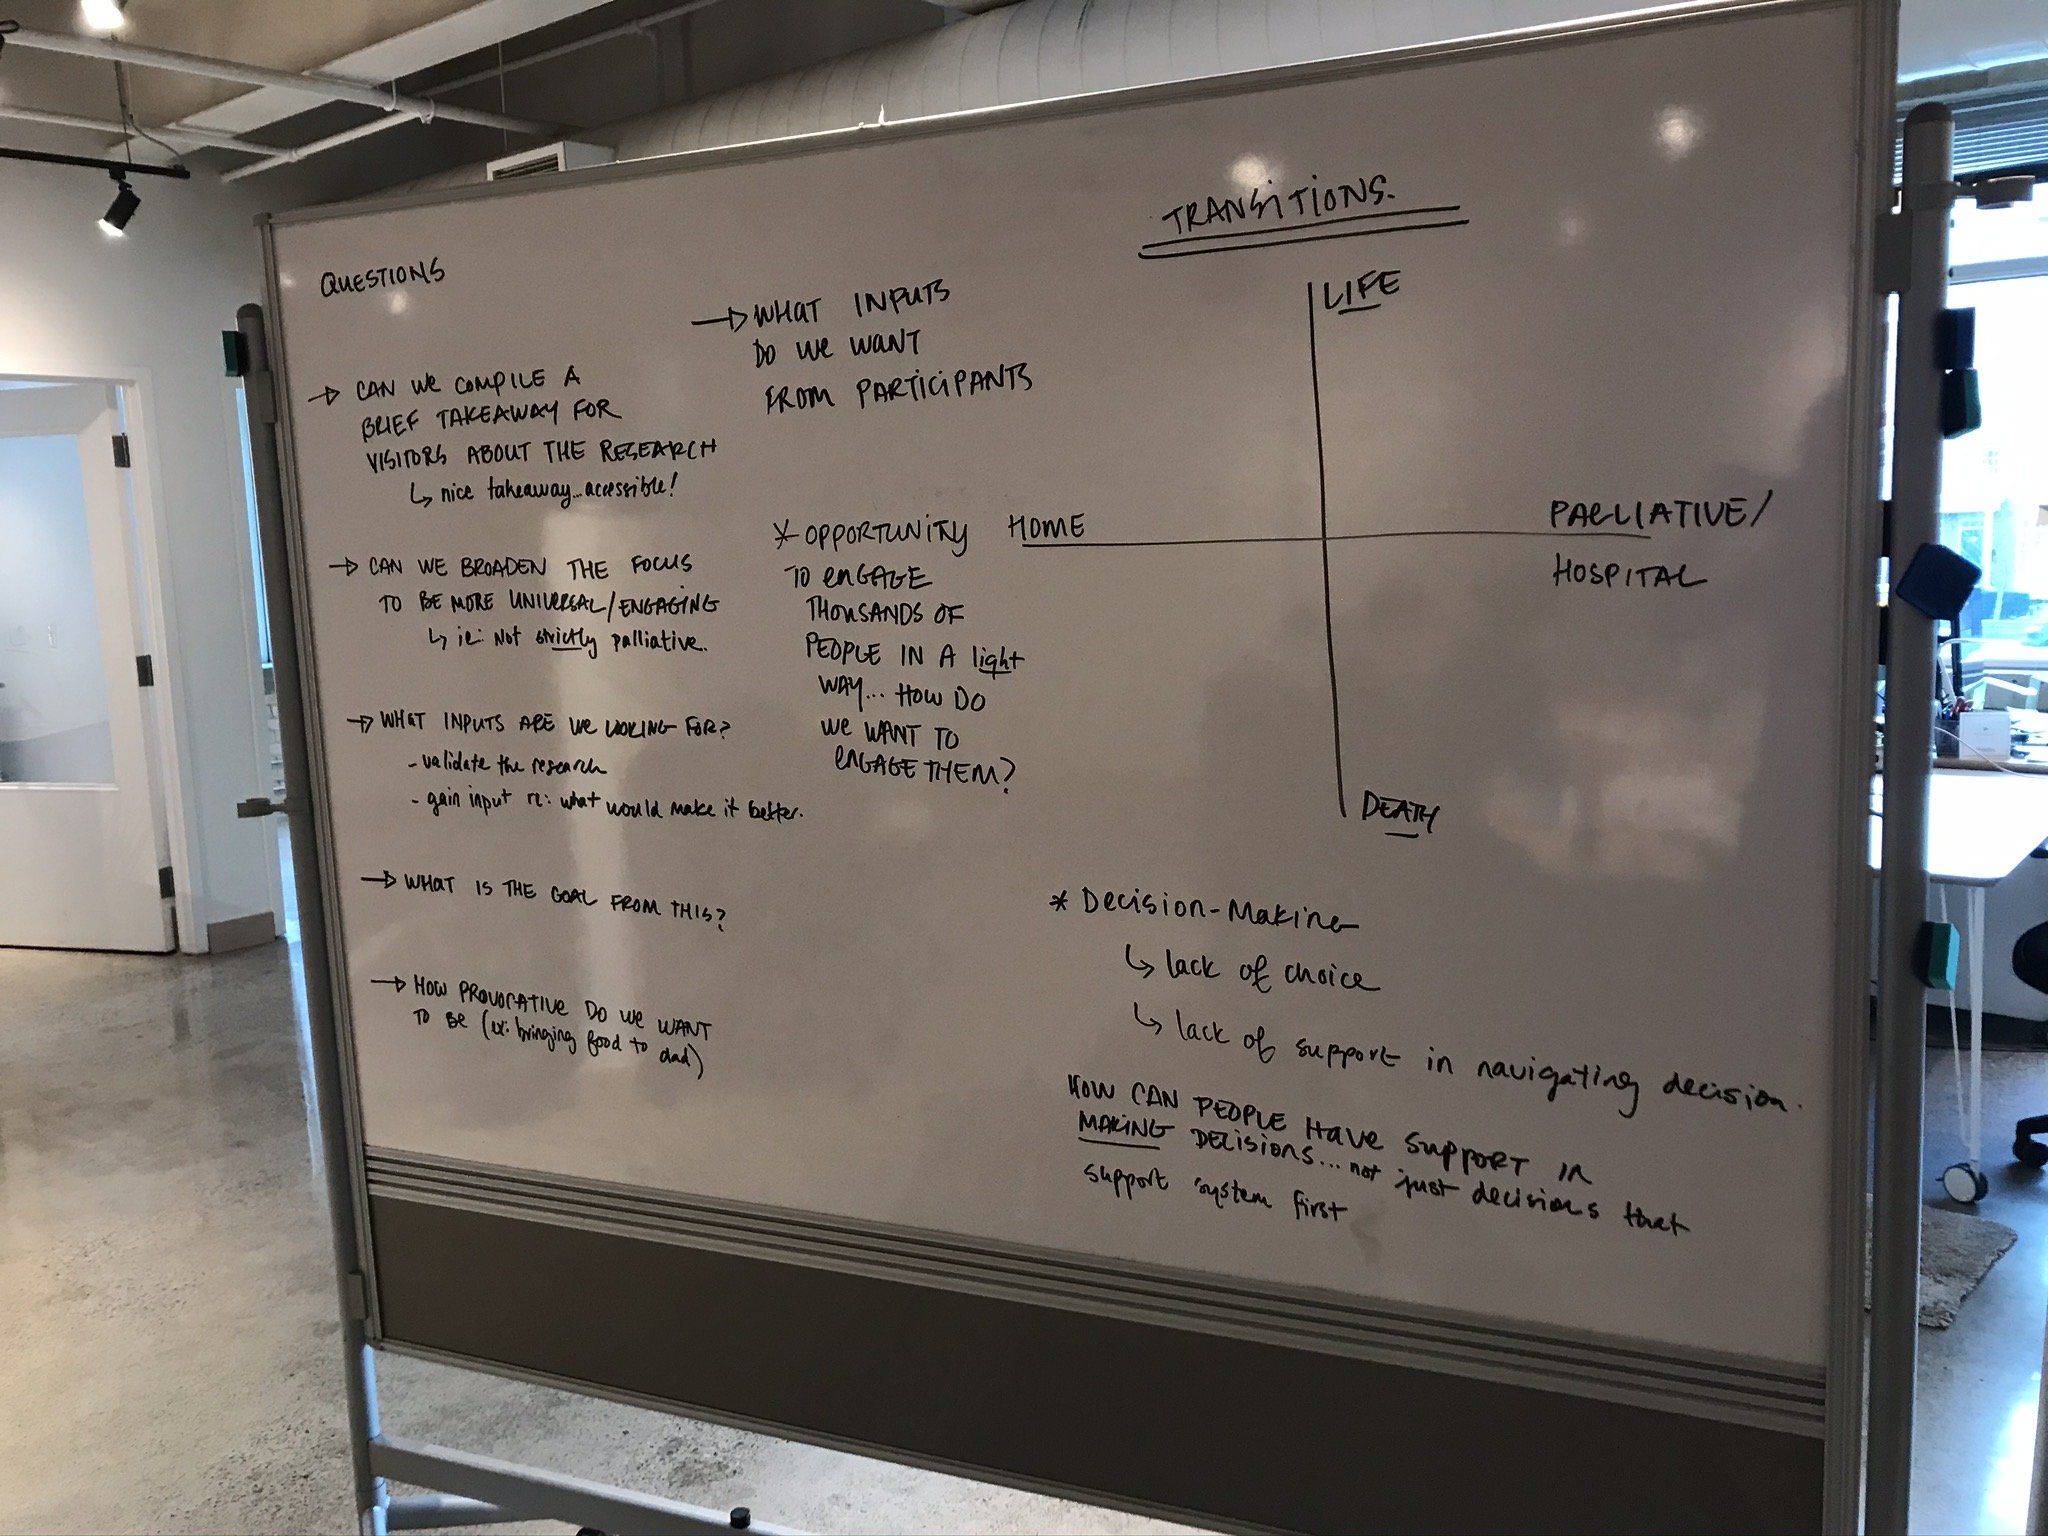 QUESTIONS
→ CAN WE COMPILE A
BRIEF TAKEAWAY FOR
VISITORS ABOUT THE RESEARCH
↳ nice takeaway...accessible!
→ CAN WE BROADEN THE FOCUS
TO BE MORE UNIVERSAL/ENGAGING
↳ ie: Not strictly palliative.
→ WHAT INPUTS ARE WE LOOKING FOR?
- validate the research
- gain input re: what would make it better.
→ WHAT IS THE GOAL FROM THIS?
→ HOW PROVOCATIVE DO WE WANT
TO BE (ex: bringing food to dad)
→ WHAT INPUTS
DO WE WANT
FROM PARTICIPANTS
* OPPORTUNITY
TO ENGAGE
THOUSANDS OF
PEOPLE IN A light
WAY... HOW DO
WE WANT TO
ENGAGE THEM?
TRANSITIONS.
LIFE
HOME
PALLIATIVE/
HOSPITAL
DEATH
* Decision-Making
↳ lack of choice
↳ lack of support in navigating decision.
HOW CAN PEOPLE HAVE SUPPORT IN
MAKING DECISIONS... not just decisions that
support system first